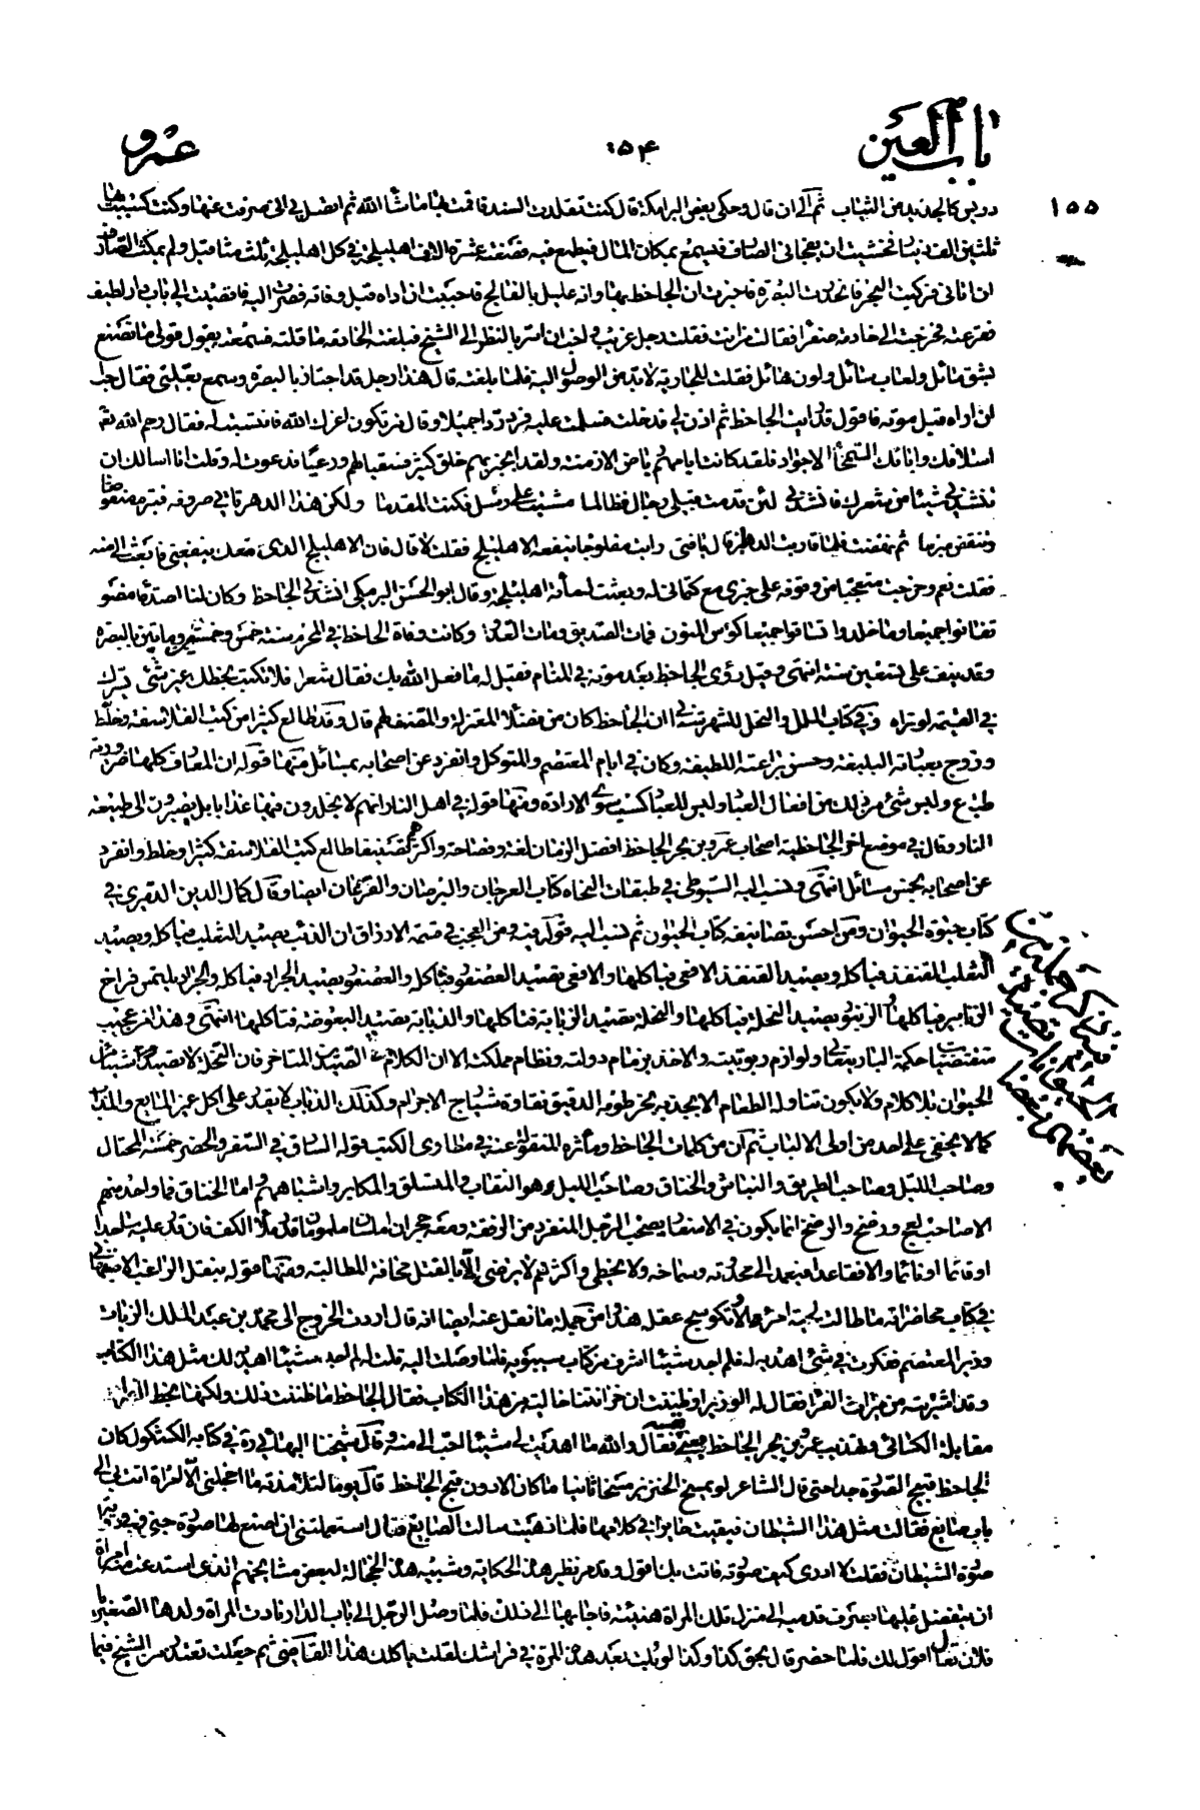 باب العين
١٥٤
عمرو
١٥٥
دريس كالجديد من الثياب ثم الى ان قال وحكى بعض البرامكة قال كنت تقلدت السند فاقمت بها ما شاء الله ثم اتصل بي انى صرفت عنها وكنت كسبت بها
ثلثين الف دينار فخشيت ان يفجأنى الصارف فيسمع بمكان المال فيطمع فيه فصنعته عشرة الاف اهليلجة في كل اهليلجة ثلث مثاقيل ولم يمكث الصارف
ان اتانى فركبت البحر فانحدرت البصرة فاخبرت ان الجاحظ بها وانه عليل بالفالج فاحببت ان اراه قبل وفاته فصرت اليه فافضيت الى باب دار لطيف
فقرعته فخرجت الى خادمة صفراء فقالت من انت فقلت رجل غريب واحب ان اسر بالنظر الى الشيخ فبلغته الخادمة ما قلته فسمعته يقول قولى ما تصنع
بشق مائل ولعاب سائل ولون حائل فقلت للجارية لا بد من الوصول اليه فلما بلغته قال هذا رجل قد اجتاز بالبصرة وسمع بعلتى فقال احب
ان اراه قبل موته فاقول قد رايت الجاحظ ثم اذن لى فدخلت فسلمت عليه فرد ردا جميلا وقال من تكون اعزك الله فانتسبت له فقال رحم الله تع
اسلافك واباءك السمحاء الاجواد فلقد كانت ايامهم رياض الازمنة ولقد انجبر بهم خلق كثير فسقيا لهم ورعيا فدعوت له وقلت انا اسالك ان
تنشدنى شيئا من شعرك فانشدنى لئن قدمت قبلى رجال فطالما مشيت على رسلى فكنت المقدما ولكن هذا الدهر تاتى صروفه فتبرم منقوضا
وتنقض مبرما ثم نهضت فلما قاربت الدهليز قال يا فتى رايت مفلوجا ينفعه الاهليلج فقلت لا قال فان الاهليلج الذى معك ينفعنى فابعث الى منه
فقلت نعم وخرجت متعجبا من وقوفه على خبرى مع كتمانى له وبعثت له مائة اهليلجة وقال ابو الحسن البرمكى انشدنى الجاحظ وكان لنا اصدقاء مضوا
تفانوا جميعا وما خلدوا تساقوا جميعا كؤس المنون فمات الصديق ومات العدو وكانت وفاة الجاحظ في المحرم سنة خمس وخمسين وماتين بالبصرة
وقد نيف على تسعين سنة انتهى وقيل رؤى الجاحظ بعد موته في المنام فقيل له ما فعل الله بك فقال شعرا فلا تكتب بخطك غير شئ يسرك
في القيمة لو تراه وفي كتاب الملل والنحل للشهرستانى ان الجاحظ كان من فضلاء المعتزلة والمصنف لهم قال وقد طالع كثيرا من كتب الفلاسفة وخلط
وروج بعباراته البليغة وحسن براعته اللطيفة وكان في ايام المعتصم والمتوكل وانفرد عن اصحابه بمسائل منها قوله ان المعارف كلها ضرورية
طباع وليس شئ من ذلك من افعال العباد وليس للعباد كسب سوى الارادة ومنها قوله في اهل النار انهم لا يخلدون فيها عذابا بل يصيرون الى طبيعة
النار وقال في موضع اخر الجاحظية اصحاب عمرو بن بحر الجاحظ افضل الزمان لغة وفصاحة واكثرهم تصنيفا طالع كتب الفلاسفة كثيرا وخلط وانفرد
عن اصحابه بخمس مسائل انتهى ونسب اليه السيوطى في طبقات النحاة كتاب العرجان والبرصان والقرعان ايضا وقال كمال الدين الدميرى في
كتاب حيوة الحيوان ومن احسن تصانيفه كتاب الحيوان ثم نسب اليه قوله فيه ومن العجب في قسمة الارزاق ان الذئب يصيد الثعلب فياكله ويصيد
الثعلب القنفذ فياكله ويصيد القنفذ الافعى فياكلها والافعى تصيد العصفور فتاكله والعصفور يصيد الجراد فياكله والجراد يلتمس فراخ
الزنابير فياكلها والزنبور يصيد النحلة فياكلها والنحلة تصيد الذبابة فتاكلها والذبابة تصيد البعوضة فتاكلها انتهى وهذا من عجيب
مقتضيات حكمة البارى تعالى ولوازم ربوبيته والاخذ بزمام دولته ونظام مملكته الا ان الكلام في الصيدين المتاخر فان النحل لا تصيد شيئا من
الحيوان بلا كلام ولا يكون تناوله الطعام الا بجذبه بخرطومه الدقيق نقاوة شباج الاجرام وكذلك الذباب لا يقدر على اكل غير المايع والمذاب
كما لا يخفى على احد من اولى الالباب ثم ان من كلمات الجاحظ وماثره المنقولة عنه في مطاوى الكتب قوله السارق في السفر والحضر خمسة المحتال
وصاحب الليل وصاحب الطريق والنباش والخناق وصاحب الليل هو النقاب والمتسلق والمكابر واشباههم واما الخناق فما واحد منهم
الا صاحب بعج ورضخ والرضخ انما يكون في الاسفار يصحب الرجل المنفرد من الرفقة ومعه حجران املسان ملمومان قدر ملأ الكف فان قدر عليه ساجدا
او قائما او نائما والا قاعدا فيعمد الى محدوته وسماخه ولا يخطى واكثرهم لا يرضى الا بالقتل مخافة المطالبة ومنها قوله بنقل الراغب الاصفهانى
في كتاب محاضراته ما طالت لحية امرء الا تكوسج عقله هذا ومن جملة ما نقل عنه ايضا انه قال اردت الخروج الى محمد بن عبد الملك الزيات
وزير المعتصم ففكرت في شئ اهديه له فلم اجد شيئا اشرف من كتاب سيبويه فلما وصلت اليه قلت له لم اجد شيئا اهديه لك مثل هذا الكتاب
وقد اشتريته من ميراث الفراء فقال له الوزير او ظننت ان خزانتنا خالية من هذا الكتاب فقال الجاحظ ما ظننت ذلك ولكنها بخط الفراء
مقابلة الكسائى وتهذيب عمرو بن بحر الجاحظ يعنى نفسه فقال والله ما اهديت لى شيئا احب الى منه وقال شيخنا البهائى ره في كتابه الكشكول كان
الجاحظ قبيح الصورة جدا حتى قال الشاعر لو يمسخ الخنزير مسخا ثانيا ما كان الا دون قبح الجاحظ قال يوما لتلامذته ما اخجلنى الا امراة اتت بى الى
باب صايغ فقالت مثل هذا الشيطان فبقيت حايرا في كلامها فلما ذهبت سالت الصايغ فقال استعملتنى ان اصنع لها صورة جنى فقلت لا ادرى
صورة الشيطان فقلت لا ادرى كيف صورته فاتت بك اقول وقد مر نظير هذه الحكاية وشبيه هذه الخجالة لبعض مشايخهم الذى استدعت منه امراة
ان يتفضل عليها بشرف قدميه الى منزل تلك المراة هنيئة فاجابها الى ذلك فلما وصل الرجل الى باب الدار نادت المراة ولدها الصغير يا
فلان تعال اقول لك فلما حضر قال بحق كذا وكذا لو بلت بعد هذه المرة في فراشك لقلت ياكلك هذا القاضى ثم جعلت تعتذر من الشيخ فيما